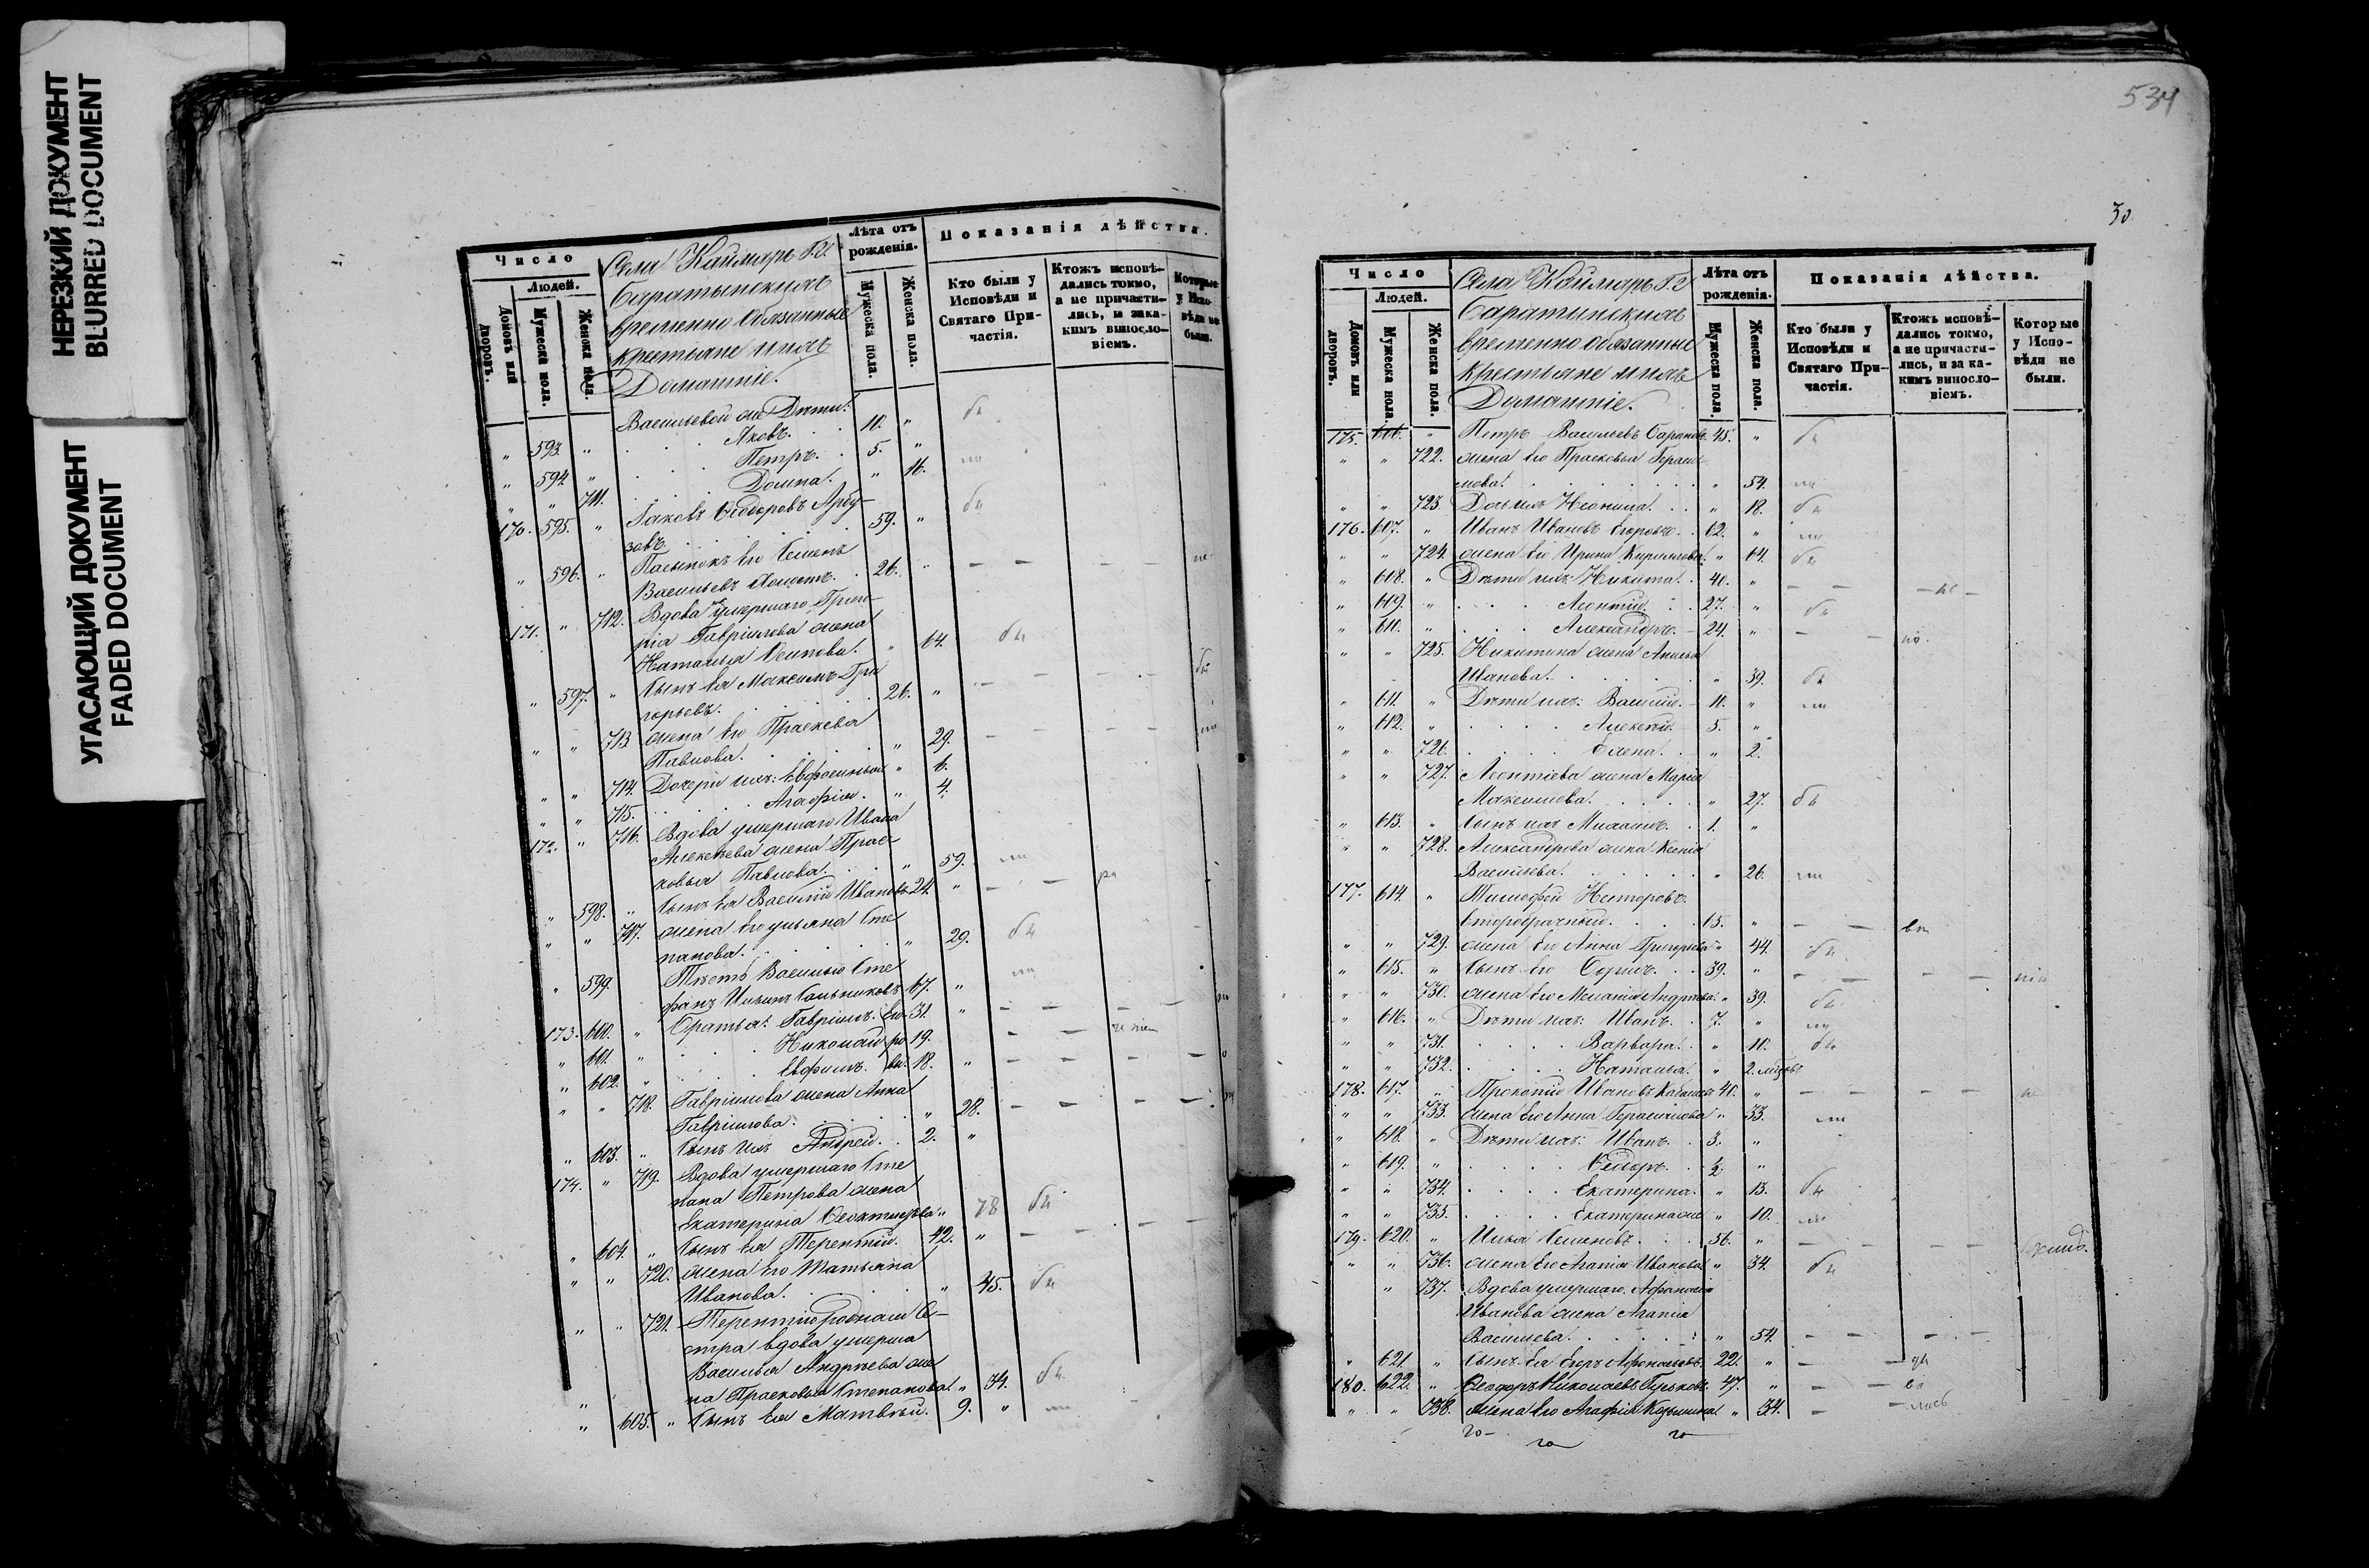 НЕРЕЗКИЙ ДОКУМЕНТ
BLURRED DOCUMENT
УГАСАЮЩИЙ ДОКУМЕНТ
FADED DOCUMENT
Число
Людей.
Домовъ или дворовъ.
Мужеска пола.
Женска пола.
Села Каймаръ Г.
Баратынскихъ
временно обязанные
крестьяне ихъ
Домашніе.
Лѣта отъ рожденія.
Мужеска пола.
Женска пола.
Показанія дѣйства.
Кто были у Исповѣди и Святаго Причастія.
Ктожъ исповѣдались токмо, а не причастились, и за какимъ винословіемъ.
Которые у Исповѣди не были.
Васильевой же Дѣти:
" 593. " Яковъ. 10. "
" 594. " Петръ. 5. "
" " 711. Домна. " 16.
170. 595. " Іаковъ Ѳедоровъ Арбу-
зовъ. 59. "
" 596. " Пасынокъ его Семенъ
Васильевъ холостъ. 26. "
171. " 712. Вдова умершаго Григо-
рія Гаврілова жена
Наталья Осипова. " 64.
" 597. " Сынъ ея Максимъ Гри
горьевъ. 26. "
" " 713. жена его Праскева
Павлова. " 29.
" " 714. Дочери ихъ: Евфросинья " 6.
" " 715. Агафія. " 4.
172. " 716. Вдова умершаго Ивана
Алексѣева жена Прас
ковья Павлова. " 59.
" 598. " Сынъ ея Василій Ивановъ 24. "
" " 717. жена его Ульяна Сте
панова. " 29.
" 599. Тесть Василью Сте
фанъ 67. "
173. 600. " Братья: Гавріилъ. 31. "
" 601. " Николай 19.
" 602. " Евфимъ. 18. "
" " 718. Гаврілова жена Анна
Гаврілова. " 28.
" 603. " Сынъ ихъ Андрей. 2. "
174. " 719. Вдова умершаго Сте
пана Петрова жена
Екатерина " 78
" 604. " Сынъ ея Терентій. 42. "
" " 720. жена его Татьяна
Иванова. " 45.
" " 721. Терентію родная Се-
стра вдова умерша
Василья Андреева же
на Прасковья Степанова. " 34.
" 605. " Сынъ ея Матвѣй. 9. "
534
30.
Число
Людей.
Домовъ или дворовъ.
Мужеска пола
Женска пола.
Села Каймаръ Г.
Баратынскихъ
временно обязанные
крестьяне ихъ
Домашніе.
Лѣта отъ рожденія.
Мужеска пола.
Женска пола.
Показанія дѣйства.
Кто были у Исповѣди и Святаго Причастія.
Ктожъ исповѣдались токмо, а не причастились, и за какимъ винословіемъ.
Которые у Исповѣди не были.
175. 606. " Петръ Васильевъ 45. "
" " 722. жена его Прасковья Гераси-
мова. " 54.
" " 723. Дочь ихъ Неонила. " 18.
176. 607. " Иванъ Ивановъ 62. "
" " 724. жена его Ирина Кирилова. " 64.
" 608. " Дѣти ихъ: Никита. 40. "
" 609. " Леонтій. 27. "
" 610. " Александръ. 24. "
" " 725. Никитина жена
Иванова. " 39.
" 611. " Дѣти ихъ: Василій. 10. "
" 612. " Алексѣй. 5. "
" " 726. Елена. " 2.
" " 727. Леонтіева жена Марія
Максимова. " 27.
" 613. " Сынъ ихъ Михаилъ. 1. "
" " 728. Александрова жена Ксенія
Васильева. " 26.
177. 614. " Тимофей Несторовъ
второбрачный. 65. "
" " 729. жена его Анна Григорьева " 44.
" 615. " Сынъ его 39. "
" " 730. жена его Меланія Андреева. " 39.
" 616. " Дѣти ихъ: Иванъ. 7. "
" " 731. Варвара. " 10.
" " 732. Наталья. "
178. 617. " Прокопій Ивановъ 40. "
" " 733. жена его Анна Герасимова " 33.
" 618. " Дѣти ихъ: Иванъ. 3. "
" 619. " Ѳедоръ. ½. "
" " 734. Екатерина. " 13.
" " 735. Екатерина же " 10.
179. 620. " Илья Семеновъ. 56. "
" " 736. жена его Агапія Иванова " 34.
" 737. Вдова умершаго Афанасія
Иванова жена Агапія
Васильева. " 54.
" 621. " Сынъ ея Егоръ Афонасьевъ. 22. "
180. 622. " Ѳеодоръ Николаевъ 47. "
" " 738. жена его Агафія Козьмина. " 34.